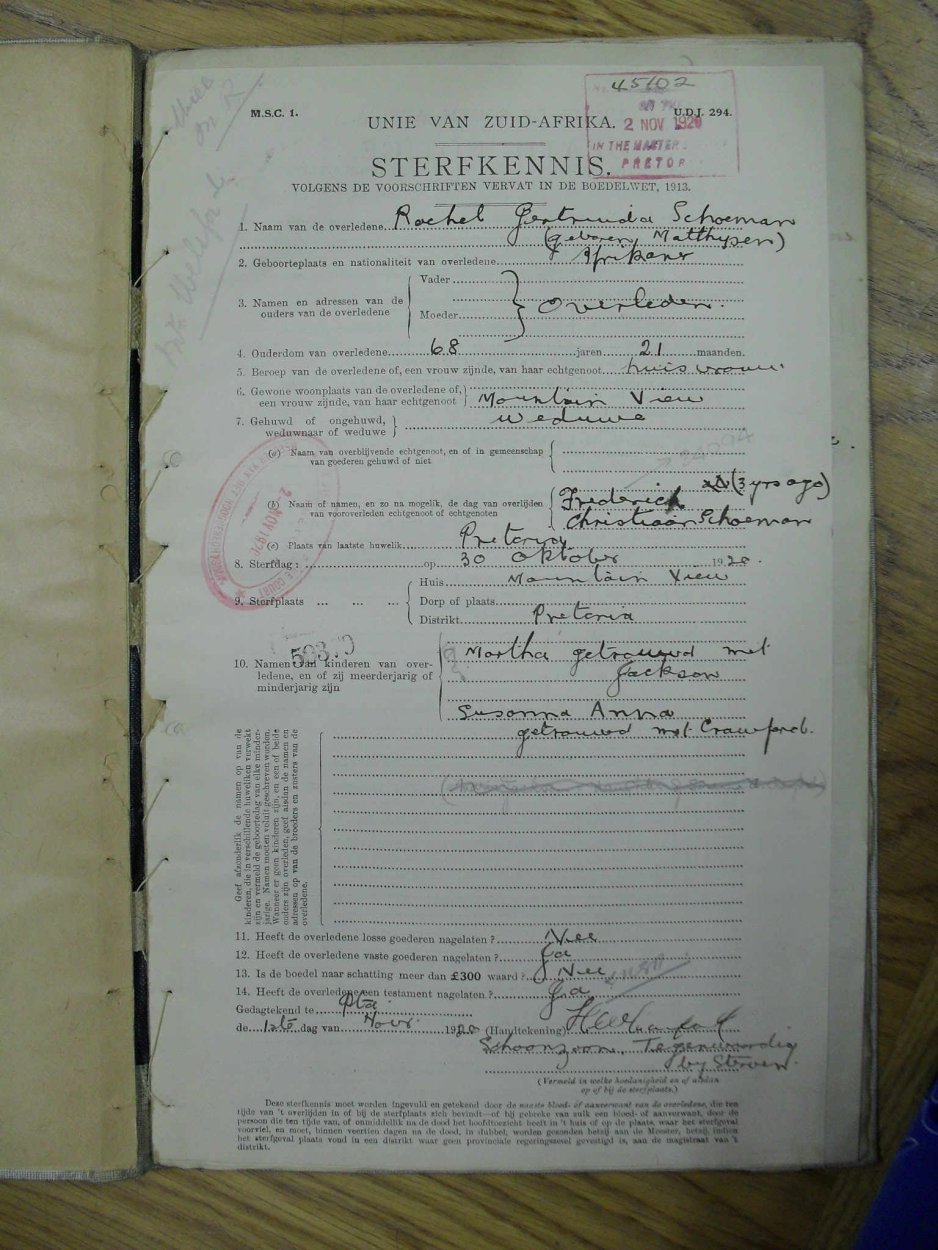 45102
M.S.C. 1.
U.D.J. 294.
2 NOV 1920
IN THE MASTER
PRETOR
UNIE VAN ZUID-AFRIKA.
STERFKENNIS.
VOLGENS DE VOORSCHRIFTEN VERVAT IN DE BOEDELWET, 1913.
1. Naam van de overledene Rachel Gertruida Schoeman
(geboren Matthysen)
2. Geboorteplaats en nationaliteit van overledene Afrikaner
3. Namen en adressen van de ouders van de overledene
Vader
Moeder
Overleden.
4. Ouderdom van overledene 68 jaren 21 maanden.
5. Beroep van de overledene of, een vrouw zijnde, van haar echtgenoot huisvrouw
6. Gewone woonplaats van de overledene of,
een vrouw zijnde, van haar echtgenoot Mountain View
7. Gehuwd of ongehuwd, weduwe
weduwnaar of weduwe
(a) Naam van overblijvende echtgenoot, en of in gemeenschap
van goederen gehuwd of niet
(3 yrs ago)
(b) Naam of namen, en zo na mogelik, de dag van overlijden Frederick
van vooroverleden echtgenoot of echtgenoten Christiaan Schoeman
(c) Plaats van laatste huwelik Pretoria
8. Sterfdag: op 30 Oktober 1920.
9. Sterfplaats ... ... ...
Huis Mountain View
Dorp of plaats
Distrikt Pretoria
10. Namen van kinderen van over-
ledene, en of zij meerderjarig of
minderjarig zijn
Martha getrouwd met
Jackson
Susanna Anna
getrouwd met Crawford.
Geef afzonderlik de namen op van de
kinderen, die in verschillende huweliken verwekt
zijn en vermeld de geboortedag van elke minder-
jarige. Namen moeten voluit geschreven worden.
Wanneer er geen kinderen zijn, en een of beide
ouders zijn overleden, geef alsdan de namen en
adressen op van de broeders en zusters van de
overledene.
11. Heeft de overledene losse goederen nagelaten ? Nee
12. Heeft de overledene vaste goederen nagelaten ? Ja
13. Is de boedel naar schatting meer dan £300 waard ? Nee
14. Heeft de overledene een testament nagelaten ? Ja
Gedagtekend te Pta
de 1ste dag van Novr. 1920 (Handtekening)
Schoonzoon, Tegenwoordig
by Sterven.
(Vermeld in welke hoedanigheid en of aldan
op of bij de sterfplaats.)
Deze sterfkennis moet worden ingevuld en getekend door de naaste bloed- of aanverwant van de overledene, die ten
tijde van 't overlijden in of bij de sterfplaats zich bevindt—of bij gebreke van zulk een bloed- of aanverwant, door de
persoon die ten tijde van, of onmiddellik na de dood het hoofdtoezicht heeft in 't huis of op de plaats, waar het sterfgeval
voorviel, en moet, binnen veertien dagen na de dood, in dubbel, worden gezonden hetzij aan de Meester, hetzij, indien
het sterfgeval plaats vond in een distrikt waar geen provinciale regeringszetel gevestigd is, aan de magistraat van 't
distrikt.